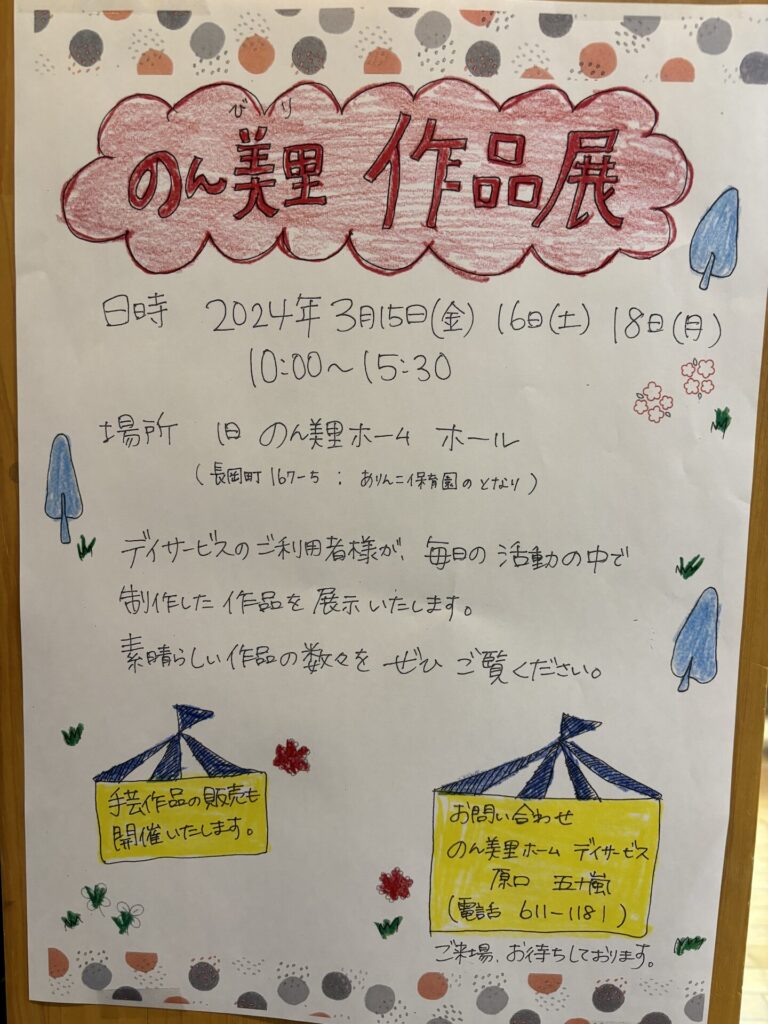 びり
のん美里 作品展
日時 2024年3月15日(金) 16日(土) 18日(月)
10:00〜15:30
場所 旧 のん美里ホーム ホール
(長岡町167-5 : ありんこ保育園のとなり)
デイサービスのご利用者様が、毎日の活動の中で
制作した作品を展示いたします。
素晴らしい作品の数々をぜひご覧ください。
手芸作品の販売も
開催いたします。
お問い合わせ
のん美里ホーム デイサービス
原口 五十嵐
(電話 611-1181)
ご来場、お待ちしております。